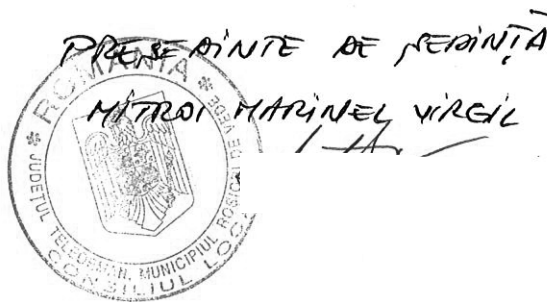 PREȘEDINTE DE ȘEDINȚĂ
MITROI MARINEL VIRGIL
* ROMANIA *
JUDEȚUL TELEORMAN, MUNICIPIUL ROȘIORI DE VEDE
CONSILIUL LOC